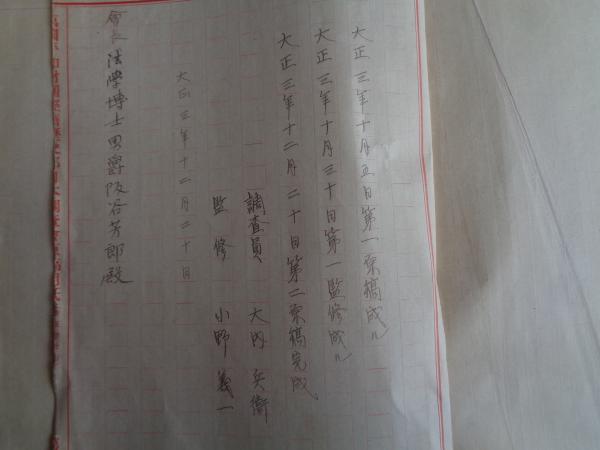 大正三年十月五日第一稾稿成ル
大正三年十月三十日第一監修成ル
大正三年十二月二十日第二稾稿完成、
調査員 大内兵衞
監修 小野義一
大正三年十二月二十日
會長法學博士男爵阪谷芳郎殿